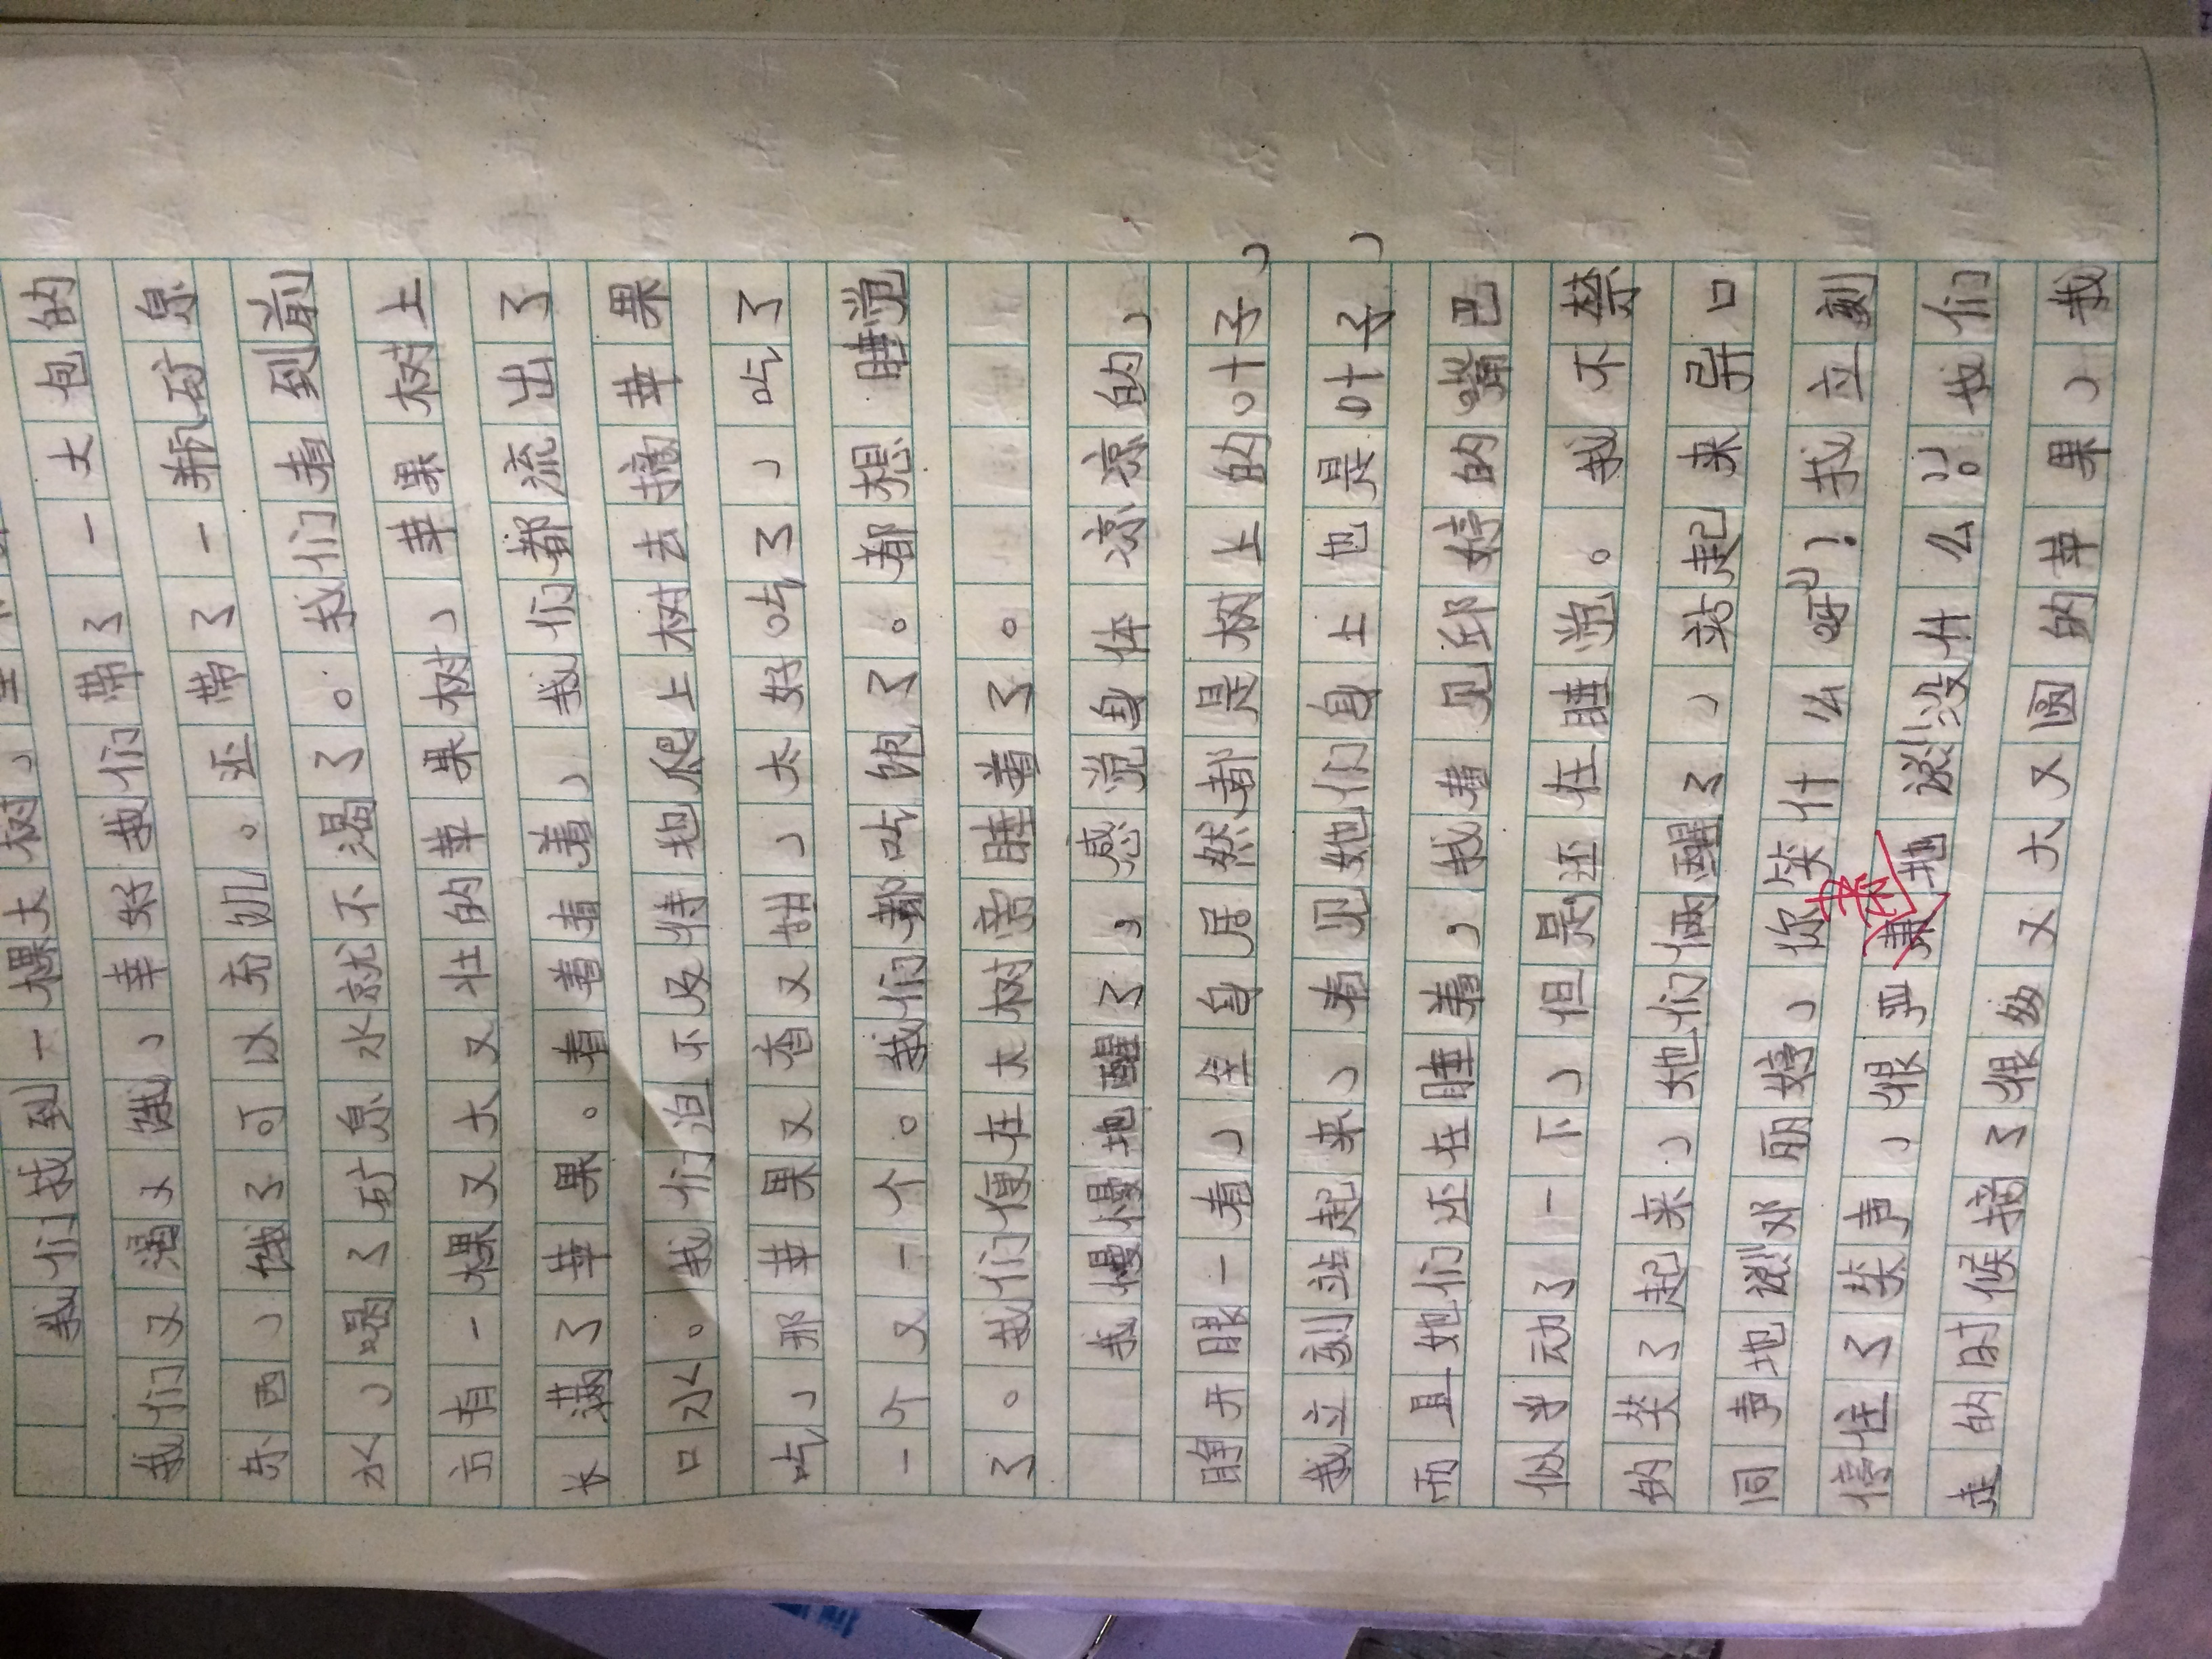 我们找到一棵大树，坐
我们又渴又饿，幸好我们带了一大包的
东西，饿了可以充饥。还带了一瓶矿泉
水，渴了矿泉水就不渴了。我们看到前
方有一棵又大又壮的苹果树，苹果树上
长满了苹果。看着看着，我们都流出了
口水。我们迫不及待地爬上树去摘苹果
吃，那苹果又香又甜，太好吃了，吃了
一个又一个。我们都吃饱了。都想睡觉
了。我们便在大树旁睡着了。
我慢慢地醒了，感觉身体凉凉的，
睁开眼一看，全身居然都是树上的叶子，
我立刻站起来，看见她们身上也是叶子，
而且她们还在睡着，我看见邱婷的嘴巴
似乎动了一下，但是还在睡觉。我不禁
的笑了起来，她们俩醒了，站起来异口
同声地说“邓丽婷，你笑什么呀”！我立刻
停住了笑声，很严肃地说“没什么”。我们
走的时候摘了很多又大又圆的苹果，我